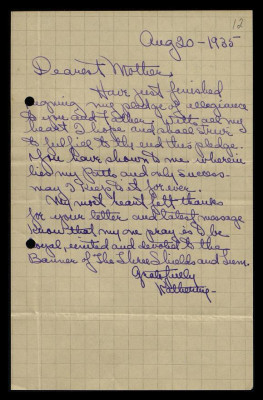 12
Aug 20 - 1935
Dearest Mother,
Have just finished
signing my pledge of allegiance
to you and Father. With all my
heart I hope and shall
to fulfil to the end this pledge.
You have shown to me wherein
lies my path and only success-
may I keep to it forever.
My most heart felt thanks
for your letter and latest message
know that my one pray is to be
loyal, united and devoted to the
Banner of The Three Shields and
Gratefully
Katherine -